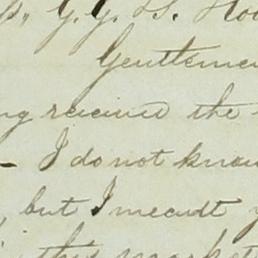 Gentlemen
ng received the
- I do not know
, but I meant
this market